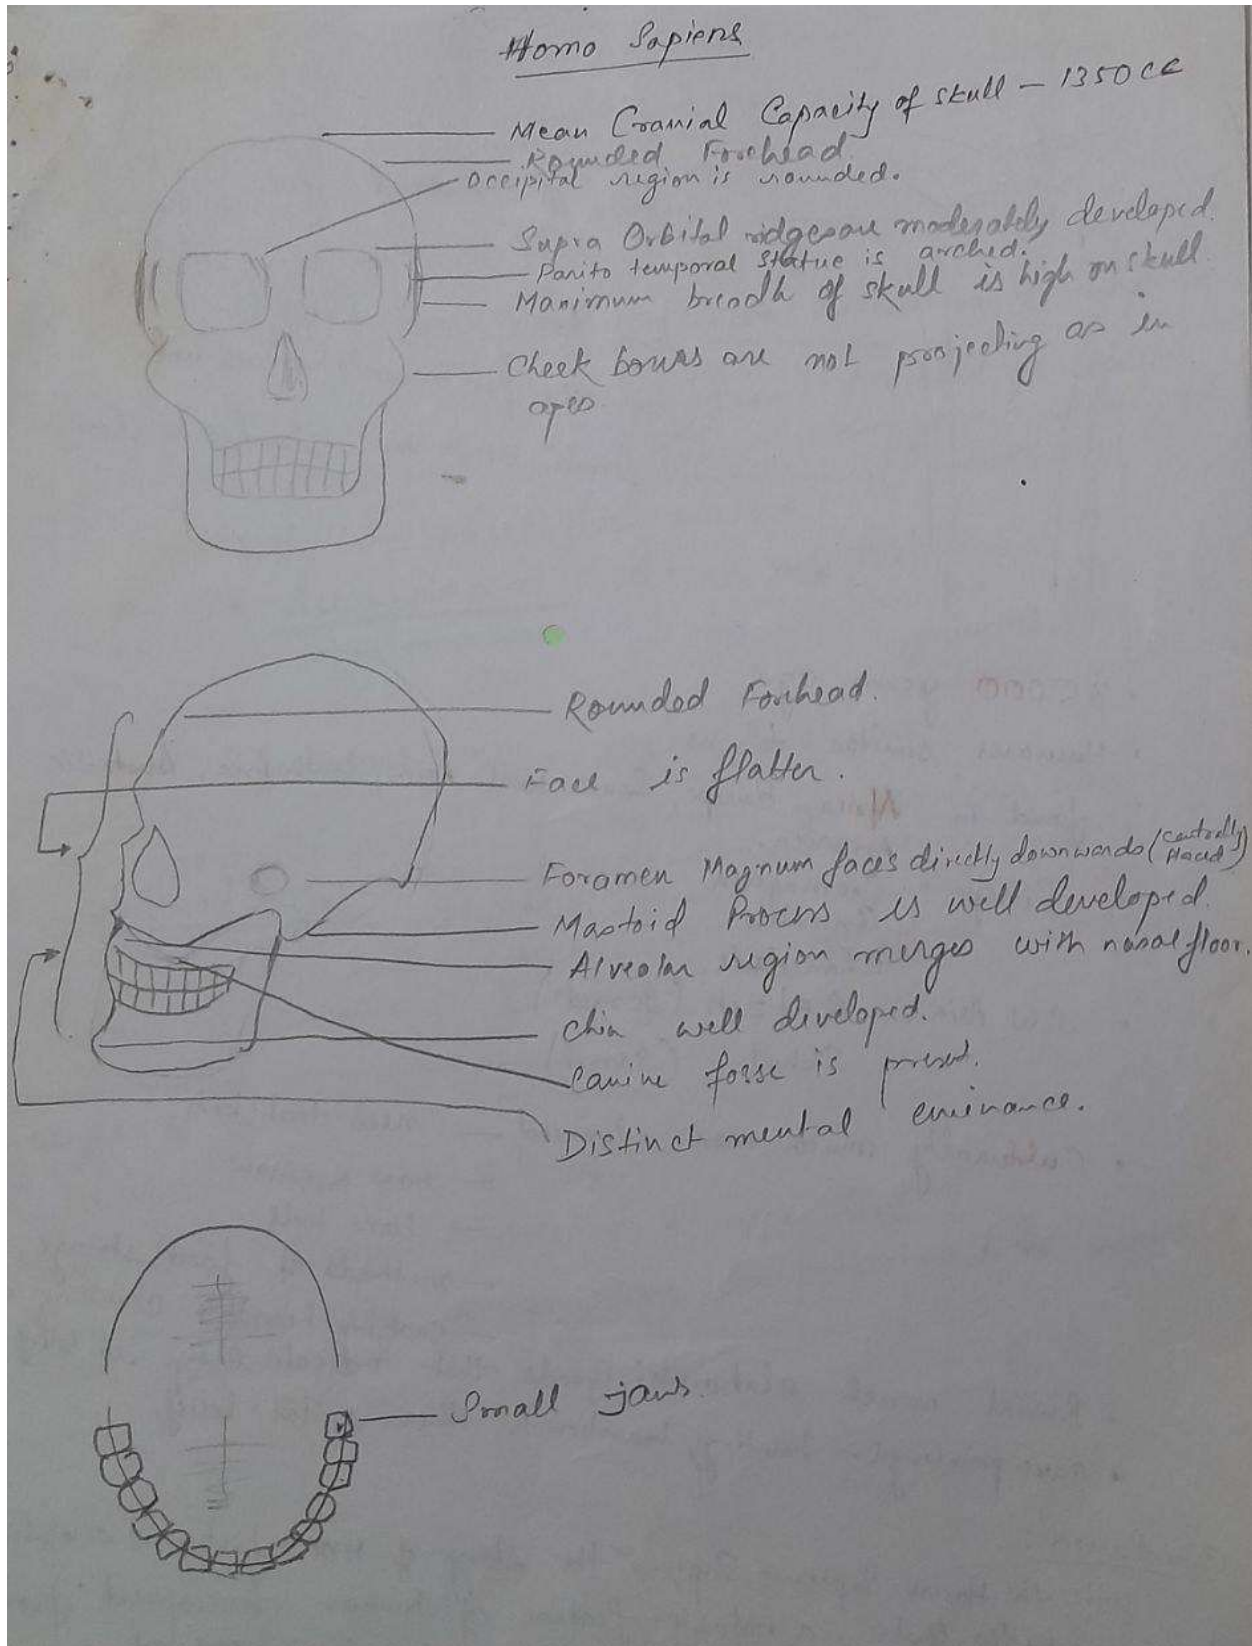 Homo Sapiens
Mean Cranial Capacity of skull – 1350 cc
Rounded Forehead
Occipital region is rounded.
Supra Orbital ridges are moderately developed.
Parito temporal statue is arched.
Maximum breadh of skull is high on skull
Cheek bones are not projecting as in
apes
Rounded Forhead.
Face is flatter.
Foramen Magnum faces directly downwards (centrally
placed)
Mastoid Process is well developed.
Alveolar region merges with nasal floor.
Chin well developed.
Canine fosse is present.
Distinct mental eminance.
Small jaws.